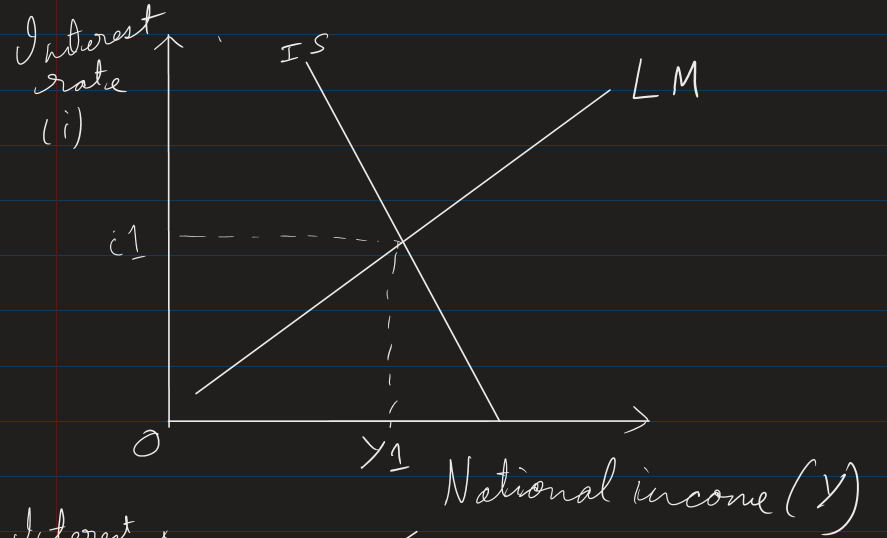 Interest
rate
(i)
IS
LM
i1
O
Y1
National income (Y)
Interest